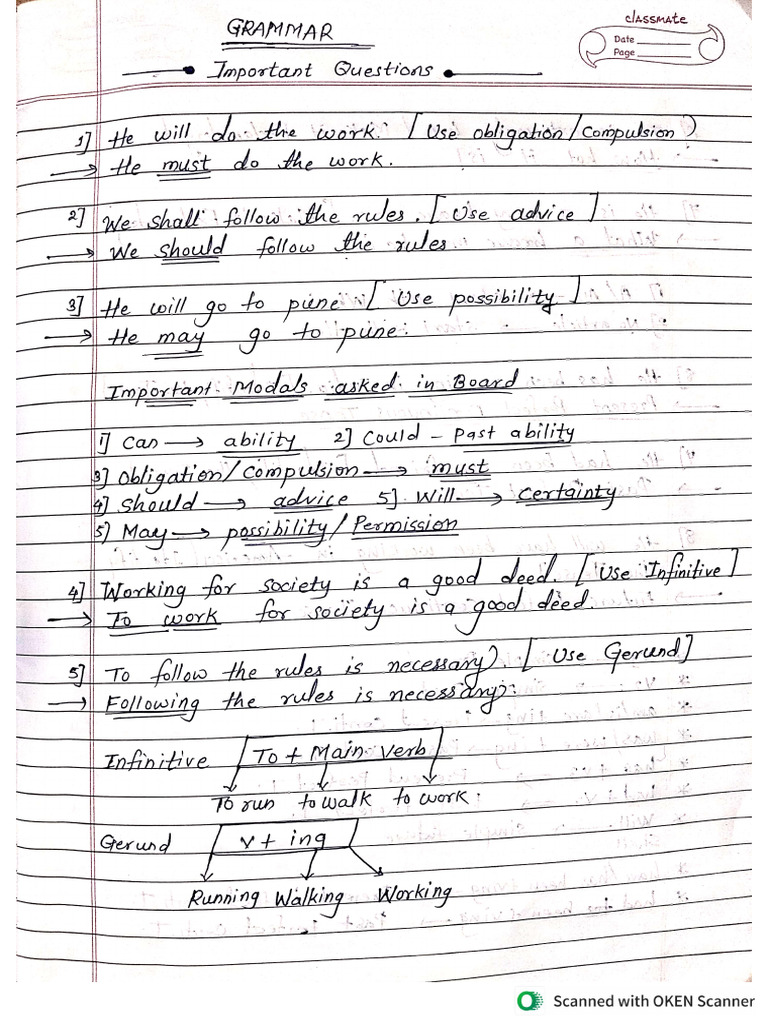 GRAMMAR
classmate
Date
Page
Important Questions
1] He will do the work. [Use obligation/Compulsion)
→ He must do the work.
2] We shall follow the rules. [Use advice]
→ We should follow the rules.
3] He will go to pune. [Use possibility]
→ He may go to pune.
Important Modals asked in Board
1] Can → ability 2] Could - Past ability
3] Obligation/Compulsion → must
4] Should → advice 5] Will → Certainty
5) May → possibility/Permission
4] Working for society is a good deed. [Use Infinitive]
→ To work for society is a good deed.
5] To follow the rules is necessary. [Use Gerund]
→ Following the rules is necessary.
Infinitive To + Main verb
To run to walk to work.
Gerund v + ing
Running Walking Working
Scanned with OKEN Scanner